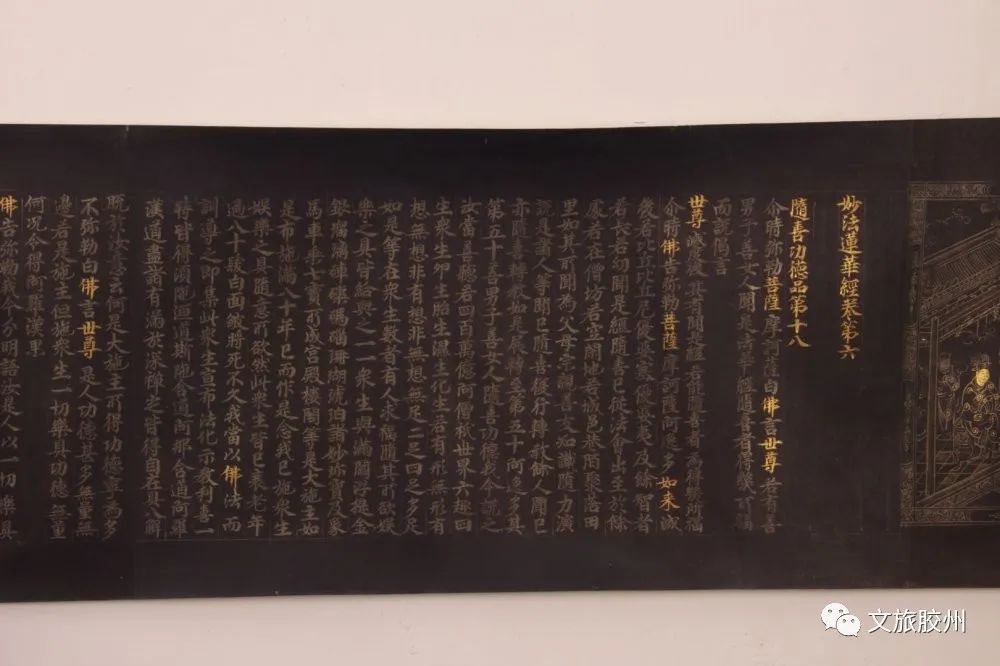 妙法蓮華經卷第六
隨喜功德品第十八
尒時弥勒菩薩摩訶薩白佛言世尊若有善
男子善女人聞是法華經隨喜者得幾所福
而說偈言
世尊滅度後其有聞是經若能隨喜者為得幾所福
尒時佛告弥勒菩薩摩訶薩阿逸多如来滅
後若比丘比丘尼優婆塞優婆夷及餘智者
若長若幼聞是經隨喜已從法會出至於餘
處若在僧坊若空閑地若城邑巷陌聚落田
里如其所聞為父母宗親善友知識隨力演
說是諸人等聞已隨喜復行轉教餘人聞已
亦隨喜轉教如是展轉至第五十阿逸多其
第五十善男子善女人隨喜功德我今說之
汝當善聽若四百萬億阿僧祇世界六趣四
生衆生卵生胎生濕生化生若有形無形有
想無想非有想非無想無足二足四足多足
如是等在衆生數者有人求福隨其所欲娛
樂之具皆給與之一一衆生與滿閻浮提金
銀瑠璃硨磲碼碯珊瑚琥珀諸妙珍寶及象
馬車乘七寶所成宮殿樓閣等是大施主如
是布施滿八十年已而作是念我已施衆生
娛樂之具隨意所欲然此衆生皆已衰老年
過八十髮白面皺將死不久我當以佛法而
訓導之即集此衆生宣布法化示教利喜一
時皆得須陁洹道斯陁含道阿那含道阿羅
漢道盡諸有漏於深禪定皆得自在具八解
脫於汝意云何是大施主所得功德寧為多
不弥勒白佛言世尊是人功德甚多無量無
邊若是施主但施衆生一切樂具功德無量
何況令得阿羅漢果
佛告弥勒我今分明語汝是人以一切樂具
文旅胶州